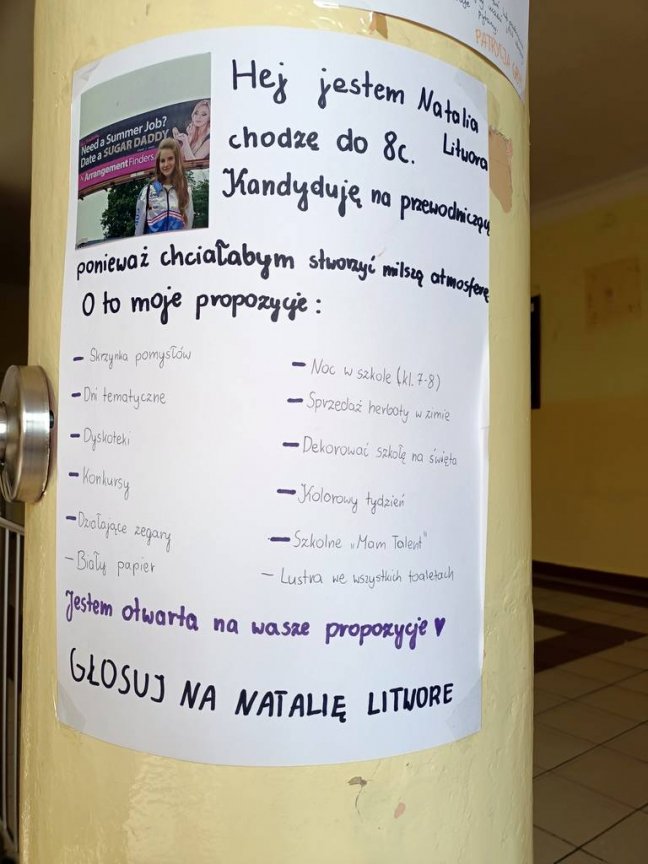 PATRYCJA
Need a Summer Job?
Date a SUGAR DADDY
ArrangementFinders
Hej jestem Natalia
Litwora
chodzę do 8c.
Kandyduję na przewodniczącą
ponieważ chciałabym stworzyć milszą atmosferę
O to moje propozycje:
- Skrzynka pomysłów
- Dni tematyczne
- Dyskoteki
- Konkursy
- Działające zegary
- Biały papier
- Noc w szkole (kl. 7-8)
- Sprzedaż herbaty w zimie
- Dekorować szkołę na święta
- Kolorowy tydzień
- Szkolne „Mam Talent"
- Lustra we wszystkich toaletach
Jestem otwarta na wasze propozycje ♥
GŁOSUJ NA NATALIĘ LITWORE